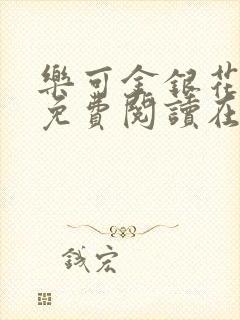 樂可金銀花
免費閱讀在